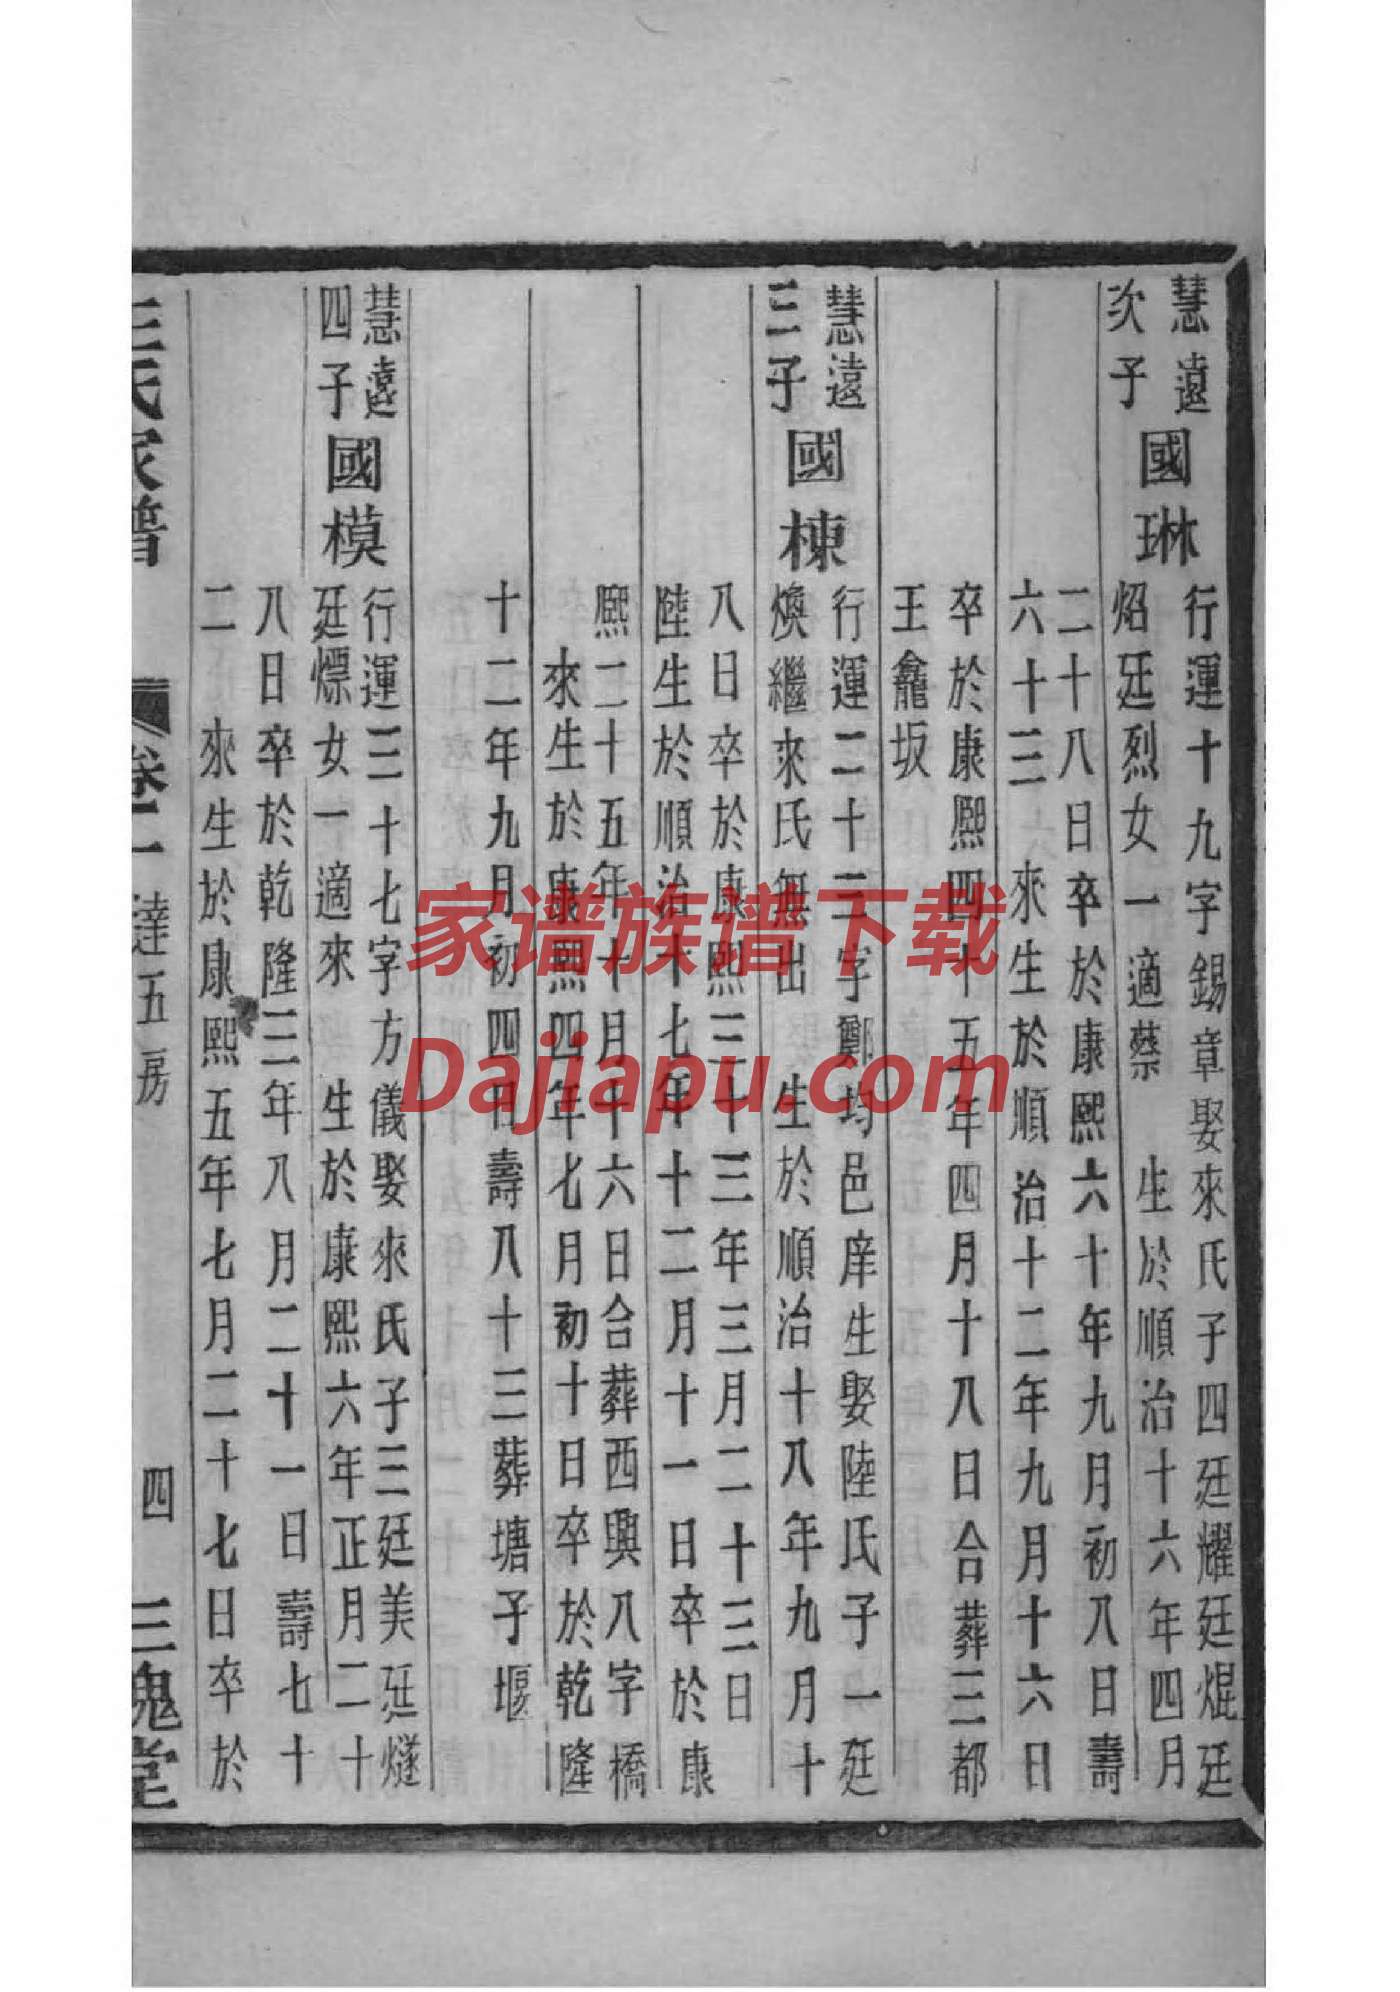 慧遠
次子
國琳
行運十九字錫章娶來氏子四廷耀廷焜廷
炤廷烈女一適蔡 生於順治十六年四月
二十八日卒於康熙六十年九月初八日壽
六十三 來生於順治十二年九月十六日
卒於康熙四十五年四月十八日合葬三都
王龕坂
慧遠
三子
國棟
行運二十三字鄭均邑庠生娶陸氏子一廷
煥繼來氏無出 生於順治十八年九月十
八日卒於康熙三十三年三月二十三日
陸生於順治十七年十二月十一日卒於康
熙二十五年十月十六日合葬西興八字橋
來生於康熙四年七月初十日卒於乾隆
十二年九月初四日壽八十三葬塘子堰
慧遠
四子
國模
行運三十七字方儀娶來氏子三廷美廷燧
廷㷼女一適來 生於康熙六年正月二十
八日卒於乾隆三年八月二十一日壽七十
二 來生於康熙五年七月二十七日卒於
王氏家譜 卷二 達五房 四 三槐堂
家谱族谱下载
Dajiapu.com